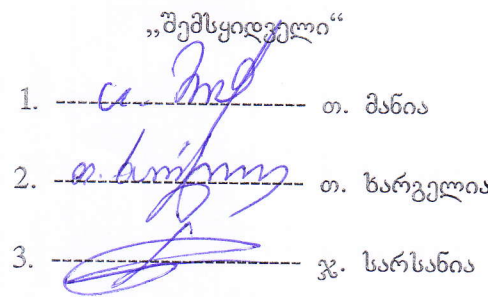 „შემსყიდველი“
1. ---------------------------- თ. მანია
2. ---------------------------- თ. ხარგელია
3. ---------------------------- ჯ. სარსანია